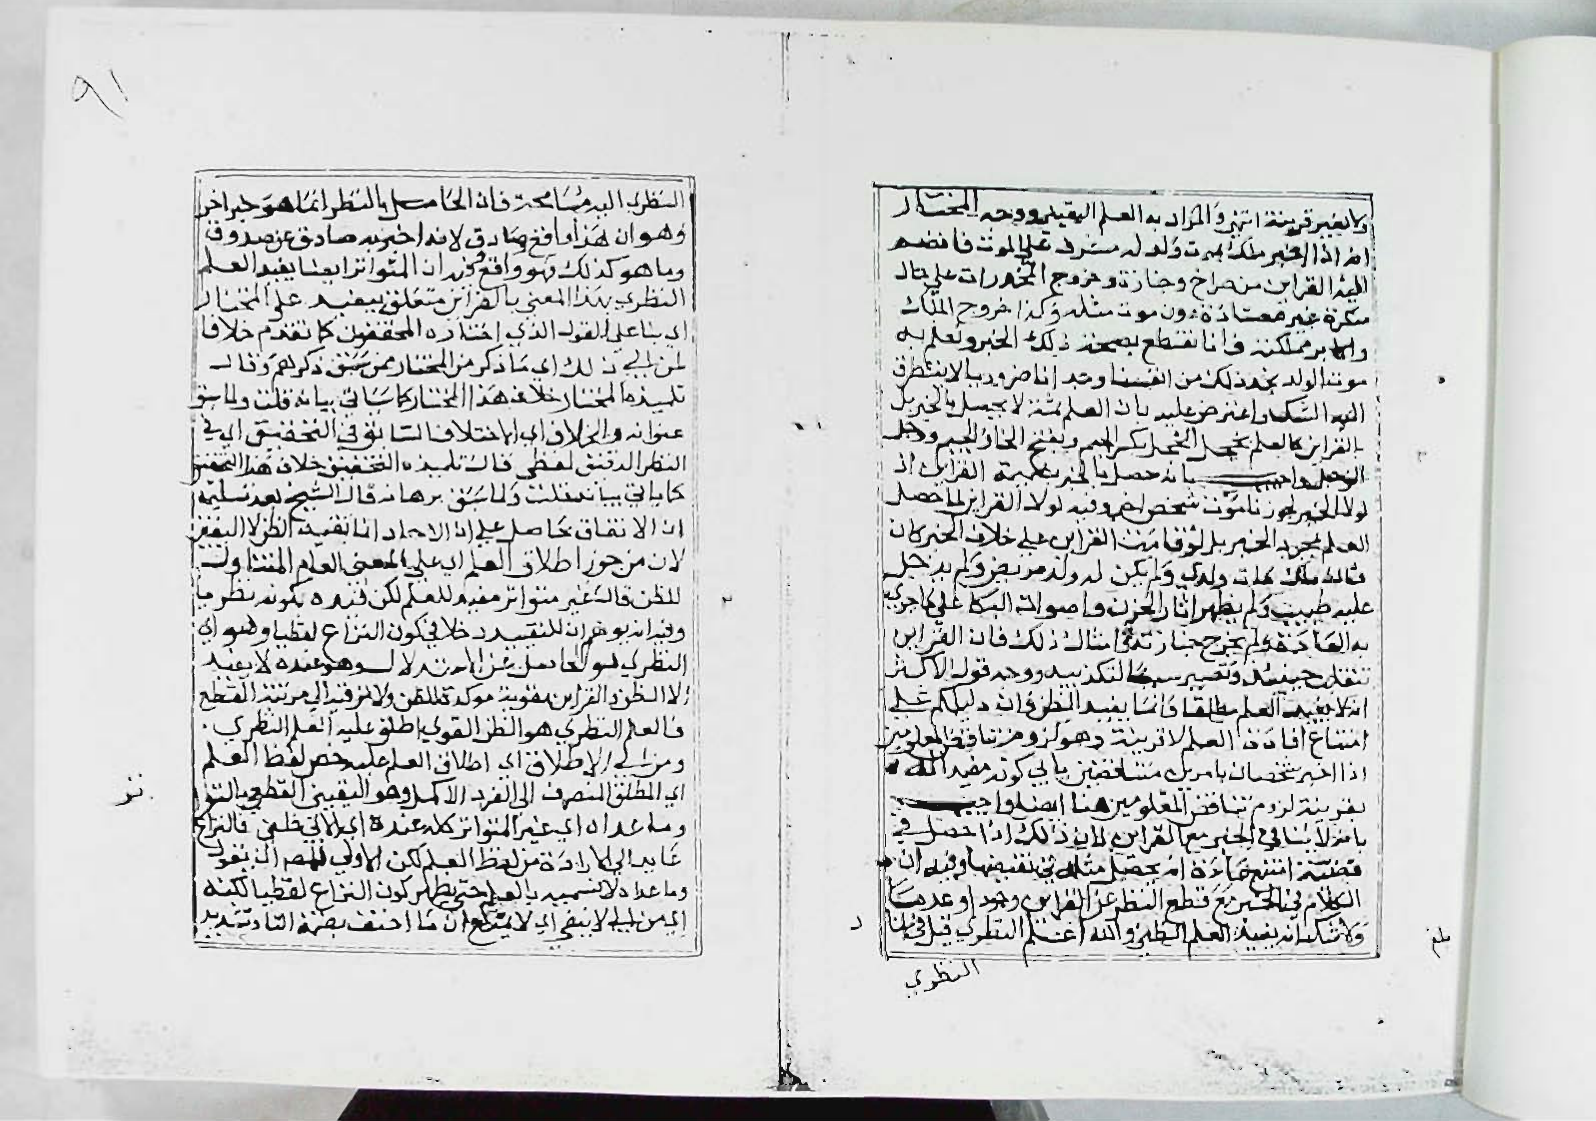 ولا بغير قرينة انتهى والمراد به العلم اليقيني ووجه المختار
انه اذا اخبر ملك بموت ولد له مشرف على الموت فانضم
اليه القراين من صراخ وجنازة وخروج المخدرات على حال
منكرة غير معتادة دون موت مثله وكذا خروج الملك
واكابر مملكته فانا نقطع بصحة ذلك الخبر ونعلم به
موت الولد نجد ذلك من انفسنا وجدانا ضروريا لا يتطرق
اليه الشك واعترض عليه بان العلم ثمة لا يحصل بالخبر بل
بالقراين كالعلم بخجل الخجل بكسر الجيم وبفتح الخاء والجيم ووجل
الوجل واجيب بانه حصل بالخبر بضميمة القراين اذ
لولا الخبر لجوزنا موت شخص اخر وفيه لولا القراين لما حصل
العلم بمجرد الخبر بل لو قامت القراين على خلاف الخبر كان
قال ملك مات ولدي ولم يكن له ولد مريض ولم يدخل
عليه طبيب ولم يظهر اثار الحزن واصوات البكا على ما جرى
به العادة ولم يخرج جنازته الى امثال ذلك فان القراين
حينئذ وتصير سببا لتكذيبه ووجه قول الاكثر
انه لا يفيد العلم مطلقا وانما يفيد الظن وان دليلكم على
امتناع افادة العلم لا قرينة وهو لزوم تناقض المعلومين
اذا اخبر شخصان بامرين متناقضين يابى كونه مفيد العلم
بقرينة لزوم تناقض المعلومين هنا ايضا واجيب
بانه لا ينافي الخبر مع القراين لان ذلك اذا حصل في
قضية امتنع عادة ان يحصل مثله في نقيضها وفيه ان
الكلام في الخبر مع قطع النظر عن القراين وجودا وعدما
ولا شك انه يفيد العلم الظني والله اعلم النظري قيل في
النظري
بلغ
٩١
النظري اليه مسامحة فان الحاصل بالنظر انما هو خبر اخر
وهو ان هذا واقع صادق لانه اخبر به صادق عن صدوق
وما هو كذلك فهو واقع وحرر ان المتواتر ايضا يفيد العلم
النظري بهذا المعنى بالقراين متعلق بيفيد على المختار
اي بنا على القول الذي اختاره المحققون كما تقدم خلافا
لمن ابى ذلك اي ما ذكر من المختار ممن سبق ذكرهم وقال
تلميذه المختار خلاف هذا المختار كما ساتي بيانه قلت ولما سبق
عنوانه والخلاف اي الاختلاف السابق في التحقيق اي في
النظر الدقيق لفظي قال تلميذه التحقيق خلاف هذا التحقيق
كما ياتي بيانه قلت ولما سبق برهانه قال الشيخ بعد تسليم
ان الاتفاق حاصل على ان الاحاد انما تفيد الظن لا اليقين
لان من جوز اطلاق العلم اي على المعنى العام المتناول
للظن قال غير متواتر مفيد للعلم لكن قيده بكونه نظريا
وفيه انه يوهم ان للتقييد دخلا في كون النزاع لفظيا وهو اي
النظري هو الحاصل عن الاستدلال وهو عنده لا يفيد
الا الظن والقراين مقوية موكدة للظن ولا ترقيه الى مرتبة القطع
فالعلم النظري هو الظن القوي اطلق عليه العلم النظري
ومن ابى الاطلاق اي اطلاق العلم عليه خص لفظ العلم
اي المطلق المنصرف الى الفرد الاكمل وهو اليقيني القطعي بالتواتر
وما عداه اي غير المتواتر كله عنده اي الابي ظني فالنزاع
عايد الى الارادة من لفظ العلم لكن الاولى للمصنف ان يقول
وما عداه لا نسميه بالعلم حتى يظهر كون النزاع لفظيا لكنه
اي من ابى لا ينفي اي لا يمنع ان ما احتف بضمة التاء وتشديد